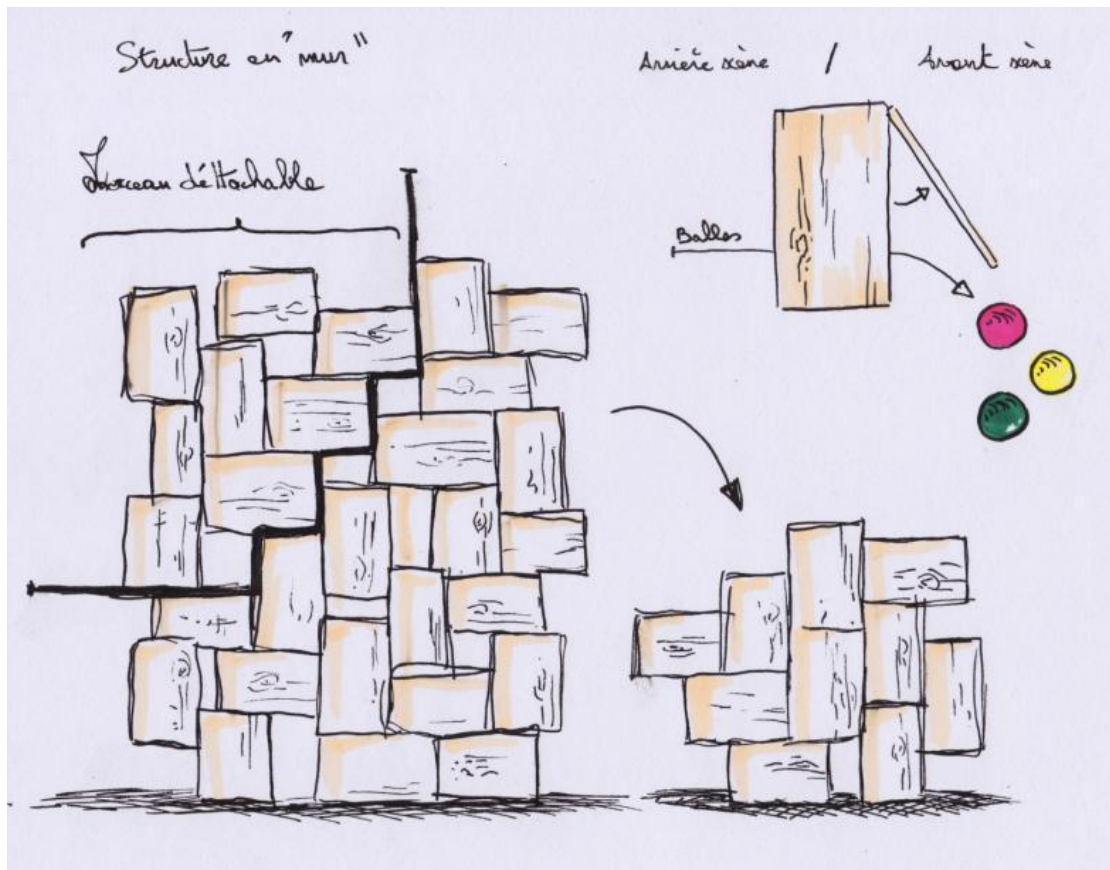 Structure en "mur"
Arrière scène / Avant scène
Morceau détachable
Balles